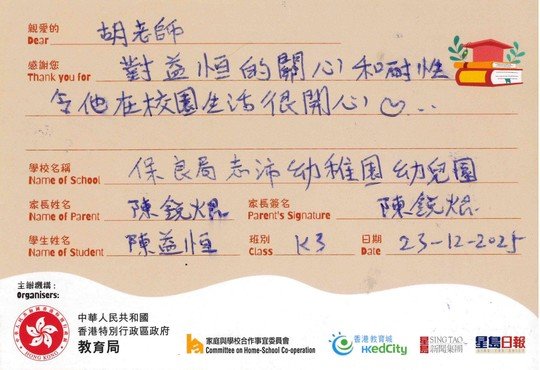 親愛的
Dear 胡老師
感謝您
Thank you for 對益恒的關心和耐性
令他在校園生活很開心♡...
學校名稱
Name of School 保良局志沛幼稚園幼兒園
家長姓名 家長簽名
Name of Parent 陳銳焜 Parent's Signature 陳銳焜
學生姓名 班別 日期
Name of Student 陳益恒 Class K3 Date 23-12-2025
主辦機構：
Organisers:
HONG KONG
中華人民共和國
香港特別行政區政府
教育局
家庭與學校合作事宜委員會
Committee on Home-School Co-operation
香港教育城
HKedCity
星島 SING TAO
新聞集團
星島日報